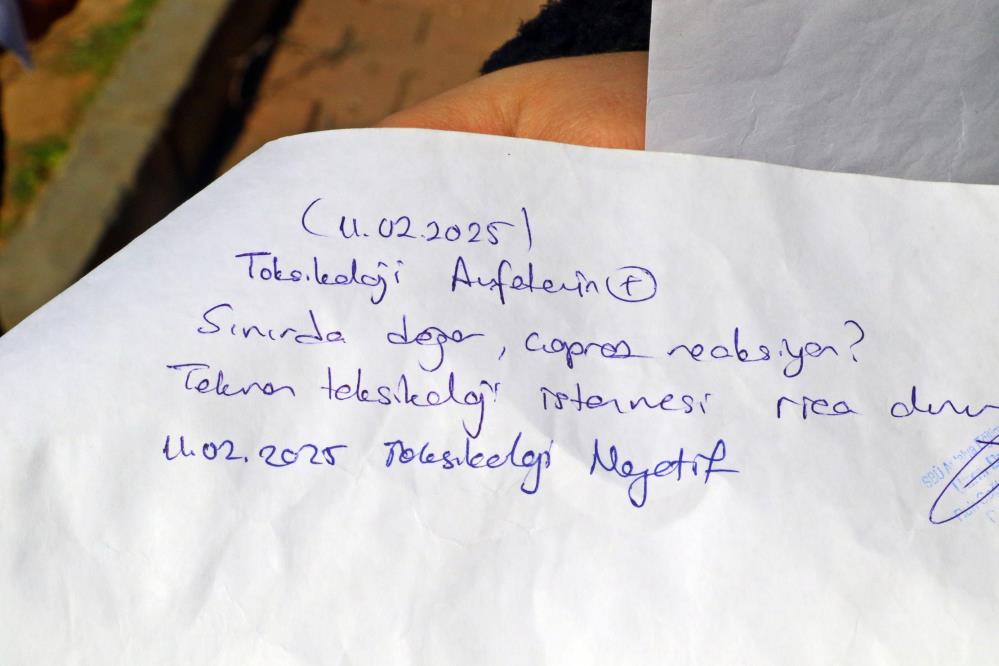 (11.02.2025)
Toksikoloji Amfetamin (+)
Sınırda değer, çapraz reaksiyon?
Tekrar toksikoloji istenmesi rica olunur
11.02.2025 Toksikoloji Negatif
SBÜ